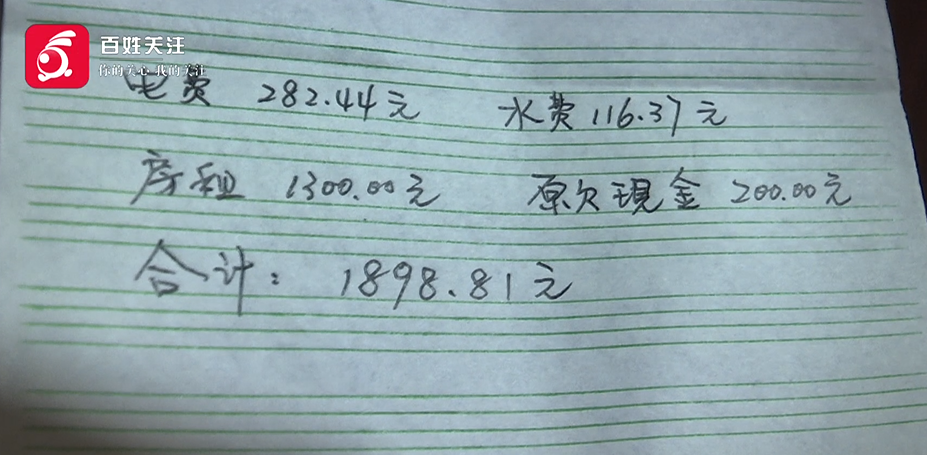 百姓关注
你的关心 我的关注
电费 282.44元 水费 116.37元
房租 1300.00元 原欠现金 200.00元
合计: 1898.81元